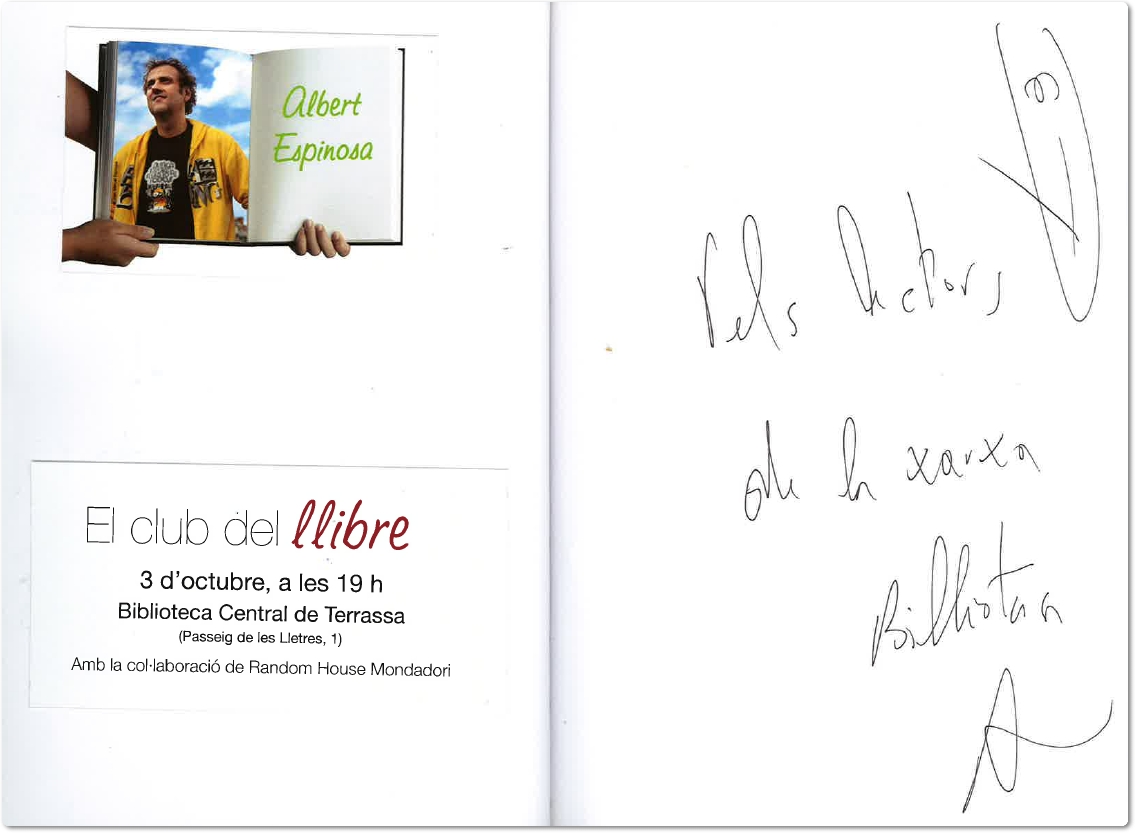 Albert
Espinosa
El club del llibre
3 d'octubre, a les 19 h
Biblioteca Central de Terrassa
(Passeig de les Lletres, 1)
Amb la col·laboració de Random House Mondadori
Pels lectors,
de la xarxa
A